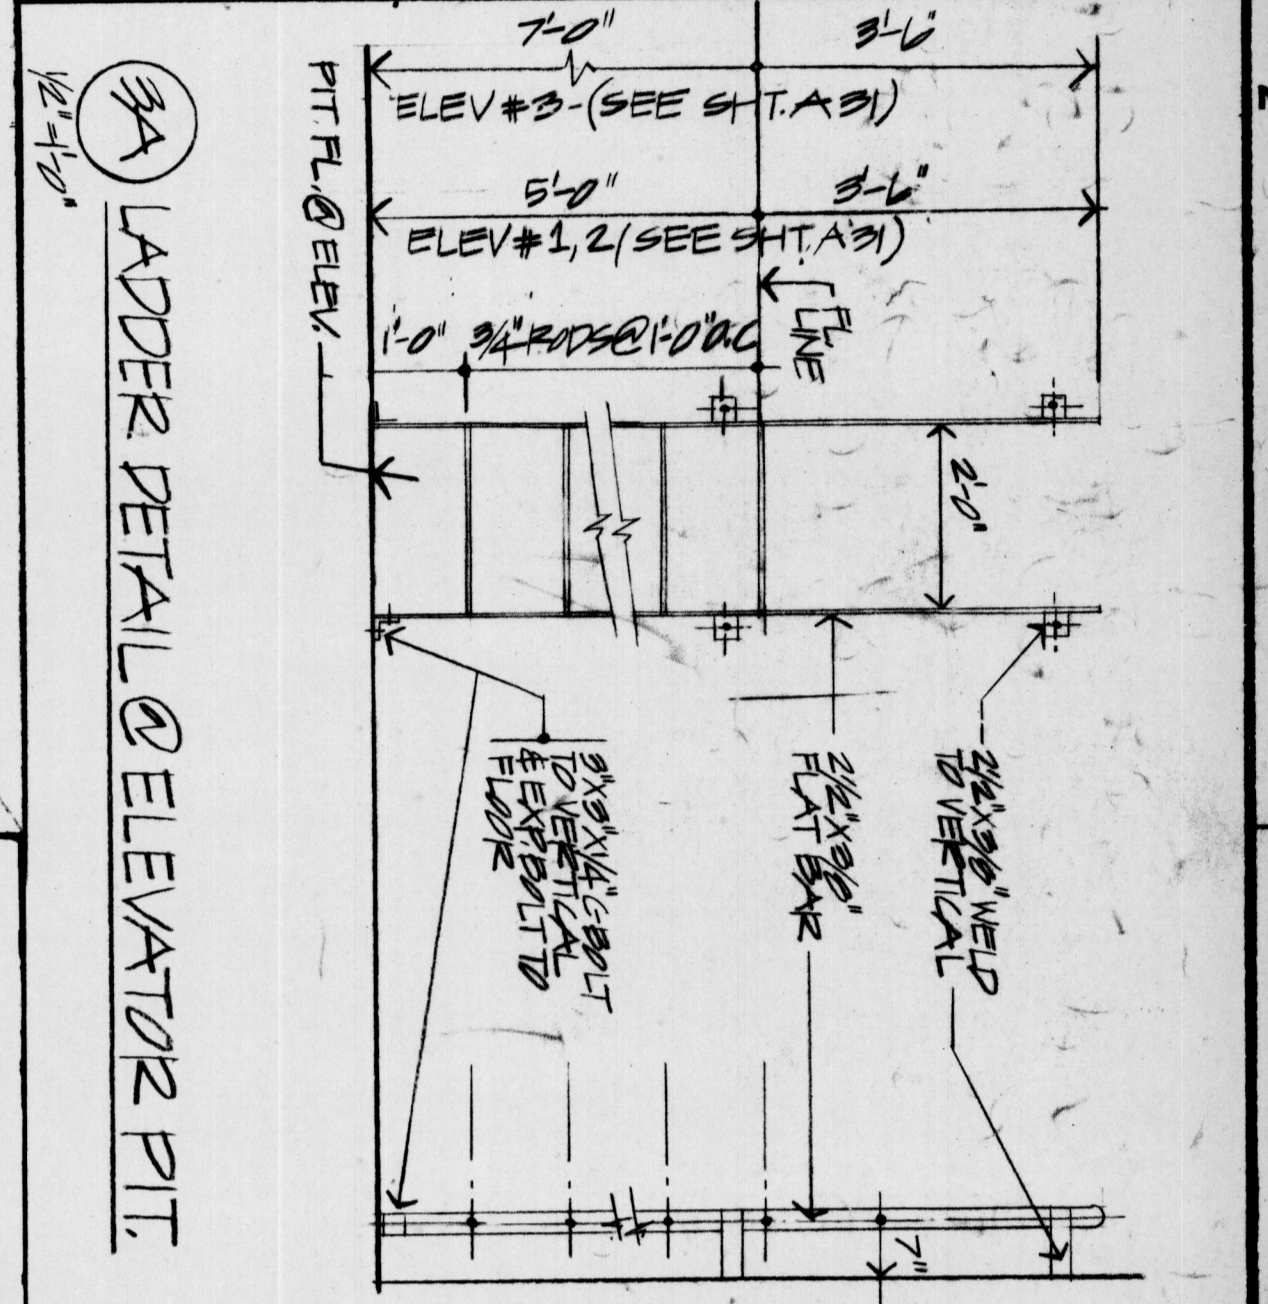 7'-0"
3'-6"
ELEV #3-(SEE SHT. A31)
5'-0"
3'-6"
ELEV #1,2 (SEE SHT. A31)
FL.
LINE
1'-0"
3/4" RODS @ 1'-0" O.C.
PIT. FL. @ ELEV.
2'-0"
2 1/2" X 3/8" WELD
TO VERTICAL
2 1/2" X 3/8"
FLAT BAR
3" X 3" X 1/4" C-BOLT
TO VERTICAL
& EXP. BOLT TO
FLOOR
7"
3A
LADDER DETAIL @ ELEVATOR PIT.
1/2"=1'-0"